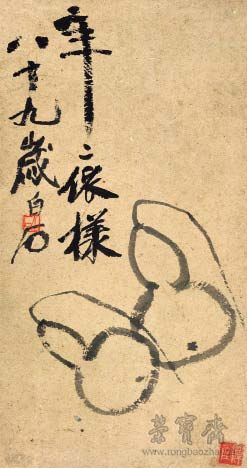 年〻依樣
八十九歲白石
榮寶齋
www.rongbaozhai.cn